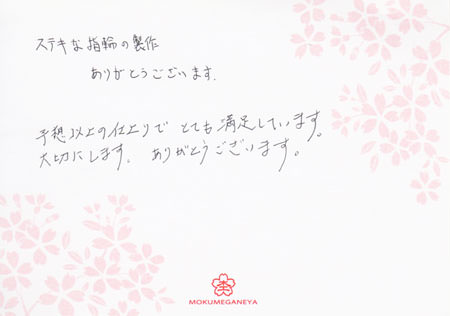 ステキな指輪の製作
ありがとうございます.
予想以上の仕上りで とても満足しています。
大切にします。 ありがとうございます。
MOKUMEGANEYA